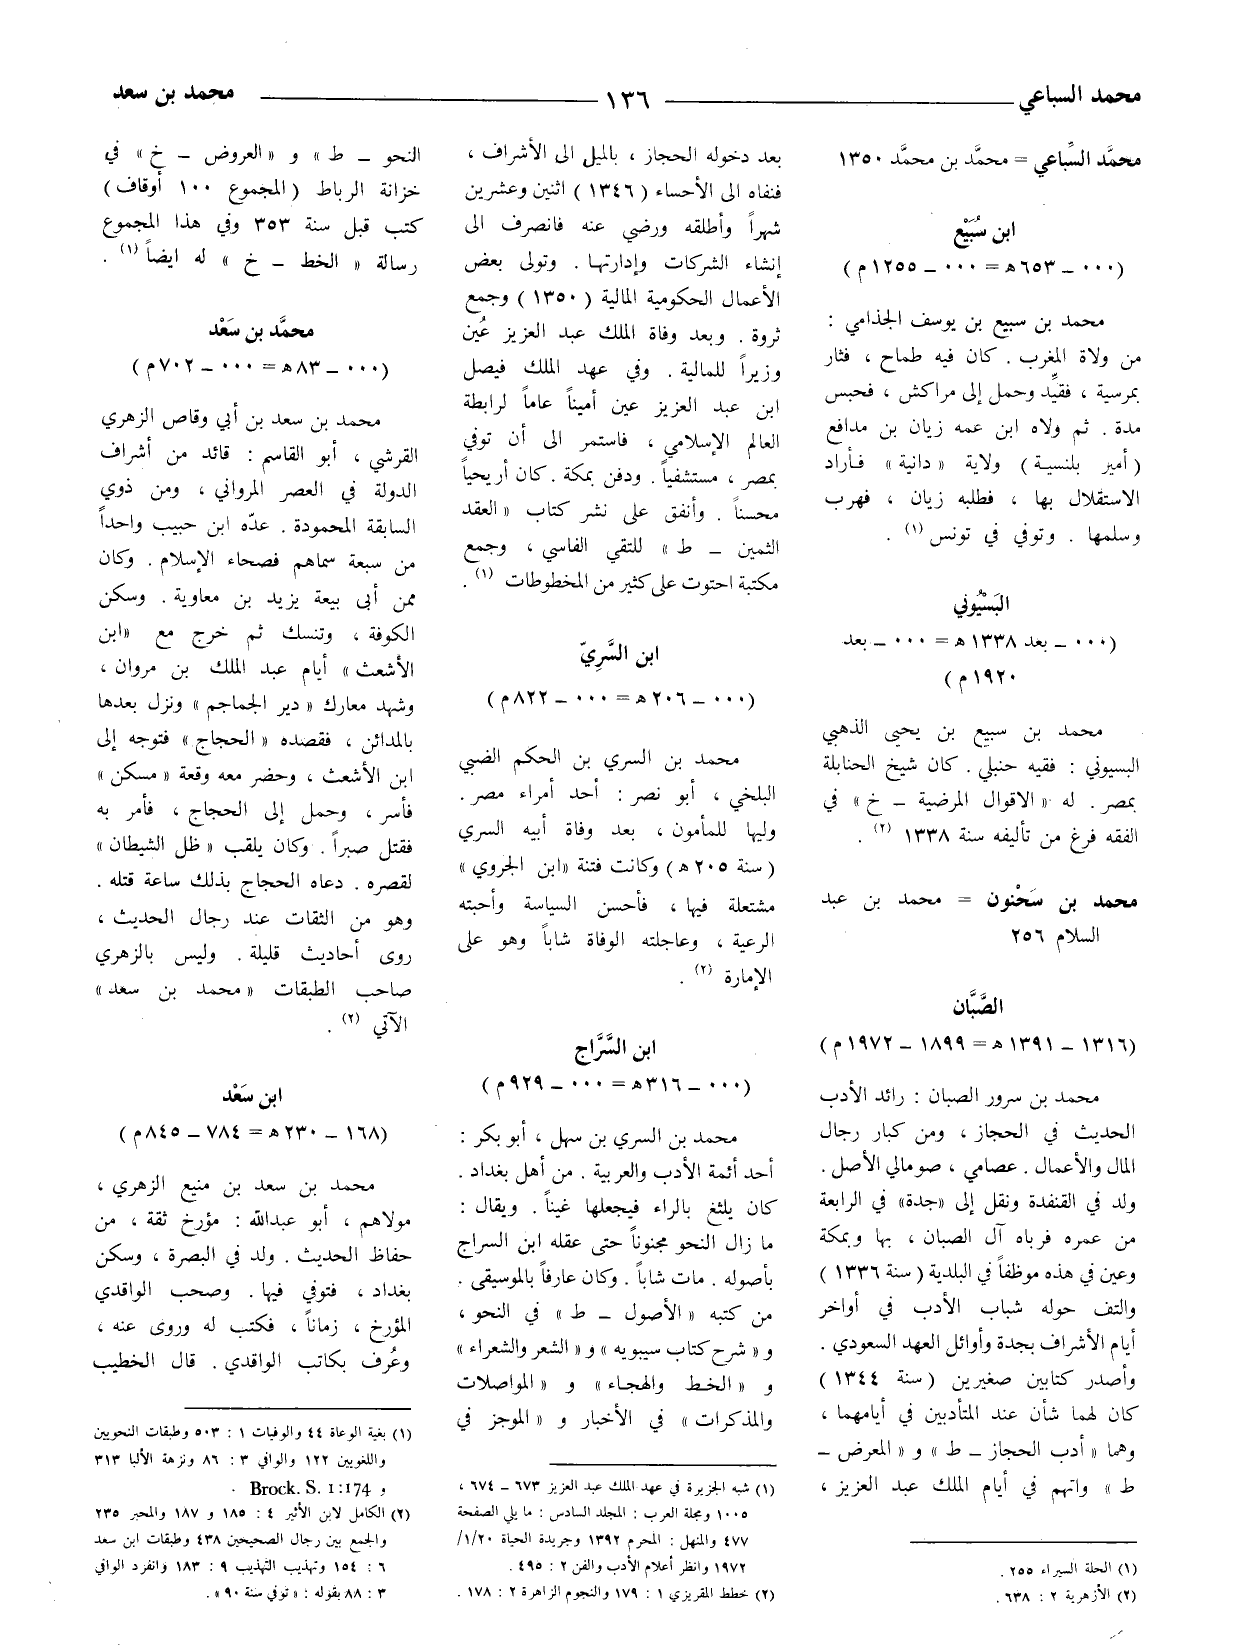 محمد السباعي
١٣٦
محمد بن سعد
محمَّد السِّباعي = محمَّد بن محمَّد ١٣٥٠
ابن سُبَيْع
(٠٠٠ ـ ٦٥٣ هـ = ٠٠٠ ـ ١٢٥٥ م)
محمد بن سبيع بن يوسف الجذامي :
من ولاة المغرب . كان فيه طماح ، فثار
بمرسية ، فقيِّد وحمل إلى مراكش ، فحبس
مدة . ثم ولاه ابن عمه زيان بن مدافع
(أمير بلنسية) ولاية «دانية» فأراد
الاستقلال بها ، فطلبه زيان ، فهرب
وسلمها . وتوفي في تونس (١) .
البَسْيُوني
(٠٠٠ ـ بعد ١٣٣٨ هـ = ٠٠٠ ـ بعد
١٩٢٠ م)
محمد بن سبيع بن يحيى الذهبي
البسيوني : فقيه حنبلي . كان شيخ الحنابلة
بمصر . له «الاقوال المرضية ـ خ» في
الفقه فرغ من تأليفه سنة ١٣٣٨ (٢) .
محمد بن سَحْنون = محمد بن عبد
السلام ٢٥٦
الصَّبَّان
(١٣١٦ ـ ١٣٩١ هـ = ١٨٩٩ ـ ١٩٧٢ م)
محمد بن سرور الصبان : رائد الأدب
الحديث في الحجاز ، ومن كبار رجال
المال والأعمال . عصامي ، صومالي الأصل .
ولد في القنفدة ونقل إلى «جدة» في الرابعة
من عمره فرباه آل الصبان ، بها وبمكة
وعين في هذه موظفاً في البلدية (سنة ١٣٣٦)
والتف حوله شباب الأدب في أواخر
أيام الأشراف بجدة وأوائل العهد السعودي .
وأصدر كتابين صغيرين (سنة ١٣٤٤)
كان لهما شأن عند المتأدبين في أيامهما ،
وهما «أدب الحجاز ـ ط» و «المعرض ـ
ط» واتهم في أيام الملك عبد العزيز ،
(١) الحلة السيراء ٢٥٥ .
(٢) الأزهرية ٢ : ٦٣٨ .
بعد دخوله الحجاز ، بالميل الى الأشراف ،
فنفاه الى الأحساء (١٣٤٦) اثنين وعشرين
شهراً وأطلقه ورضي عنه فانصرف الى
إنشاء الشركات وإدارتها . وتولى بعض
الأعمال الحكومية المالية (١٣٥٠) وجمع
ثروة . وبعد وفاة الملك عبد العزيز عُين
وزيراً للمالية . وفي عهد الملك فيصل
ابن عبد العزيز عين أميناً عاماً لرابطة
العالم الإسلامي ، فاستمر الى أن توفي
بمصر ، مستشفياً . ودفن بمكة . كان أريحياً
محسناً . وأنفق على نشر كتاب «العقد
الثمين ـ ط» للتقي الفاسي ، وجمع
مكتبة احتوت على كثير من المخطوطات (١) .
ابن السَّرِيّ
(٠٠٠ ـ ٢٠٦ هـ = ٠٠٠ ـ ٨٢٢ م)
محمد بن السري بن الحكم الضبي
البلخي ، أبو نصر : أحد أمراء مصر .
وليها للمأمون ، بعد وفاة أبيه السري
(سنة ٢٠٥ هـ) وكانت فتنة «ابن الجروي»
مشتعلة فيها ، فأحسن السياسة وأحبته
الرعية ، وعاجلته الوفاة شاباً وهو على
الإمارة (٢) .
ابن السَّرَّاج
(٠٠٠ ـ ٣١٦ هـ = ٠٠٠ ـ ٩٢٩ م)
محمد بن السري بن سهل ، أبو بكر :
أحد أئمة الأدب والعربية . من أهل بغداد .
كان يلثغ بالراء فيجعلها غيناً . ويقال :
ما زال النحو مجنوناً حتى عقله ابن السراج
بأصوله . مات شاباً . وكان عارفاً بالموسيقى .
من كتبه «الأصول ـ ط» في النحو ،
و «شرح كتاب سيبويه» و «الشعر والشعراء»
و «الخط والهجاء» و «المواصلات
والمذكرات» في الأخبار و «الموجز في
(١) شبه الجزيرة في عهد الملك عبد العزيز ٦٧٣ ـ ٦٧٤ ،
١٠٠٥ ومجلة العرب : المجلد السادس : ما يلي الصفحة
٤٧٧ والمنهل : المحرم ١٣٩٢ وجريدة الحياة ٢٠/١/
١٩٧٢ وانظر أعلام الأدب والفن ٢ : ٤٩٥ .
(٢) خطط المقريزي ١ : ١٧٩ والنجوم الزاهرة ٢ : ١٧٨ .
النحو ـ ط» و «العروض ـ خ» في
خزانة الرباط (المجموع ١٠٠ أوقاف)
كتب قبل سنة ٣٥٣ وفي هذا المجموع
رسالة «الخط ـ خ» له ايضاً (١) .
محمَّد بن سَعْد
(٠٠٠ ـ ٨٣ هـ = ٠٠٠ ـ ٧٠٢ م)
محمد بن سعد بن أبي وقاص الزهري
القرشي ، أبو القاسم : قائد من أشراف
الدولة في العصر المرواني ، ومن ذوي
السابقة المحمودة . عدّه ابن حبيب واحداً
من سبعة سماهم فصحاء الإسلام . وكان
ممن أبى بيعة يزيد بن معاوية . وسكن
الكوفة ، وتنسك ثم خرج مع «ابن
الأشعث» أيام عبد الملك بن مروان ،
وشهد معارك «دير الجماجم» ونزل بعدها
بالمدائن ، فقصده «الحجاج» فتوجه إلى
ابن الأشعث ، وحضر معه وقعة «مسكن»
فأسر ، وحمل إلى الحجاج ، فأمر به
فقتل صبراً . وكان يلقب «ظل الشيطان»
لقصره . دعاه الحجاج بذلك ساعة قتله .
وهو من الثقات عند رجال الحديث ،
روى أحاديث قليلة . وليس بالزهري
صاحب الطبقات «محمد بن سعد»
الآتي (٢) .
ابن سَعْد
(١٦٨ ـ ٢٣٠ هـ = ٧٨٤ ـ ٨٤٥ م)
محمد بن سعد بن منيع الزهري ،
مولاهم ، أبو عبدالله : مؤرخ ثقة ، من
حفاظ الحديث . ولد في البصرة ، وسكن
بغداد ، فتوفي فيها . وصحب الواقدي
المؤرخ ، زماناً ، فكتب له وروى عنه ،
وعُرف بكاتب الواقدي . قال الخطيب
(١) بغية الوعاة ٤٤ والوفيات ١ : ٥٠٣ وطبقات النحويين
واللغويين ١٢٢ والوافي ٣ : ٨٦ ونزهة الألبا ٣١٣
و Brock. S. 1:174 .
(٢) الكامل لابن الأثير ٤ : ١٨٥ و ١٨٧ والمحبر ٢٣٥
والجمع بين رجال الصحيحين ٤٣٨ وطبقات ابن سعد
٦ : ١٥٤ وتهذيب التهذيب ٩ : ١٨٣ وانفرد الوافي
٣ : ٨٨ بقوله : «توفي سنة ٩٠» .